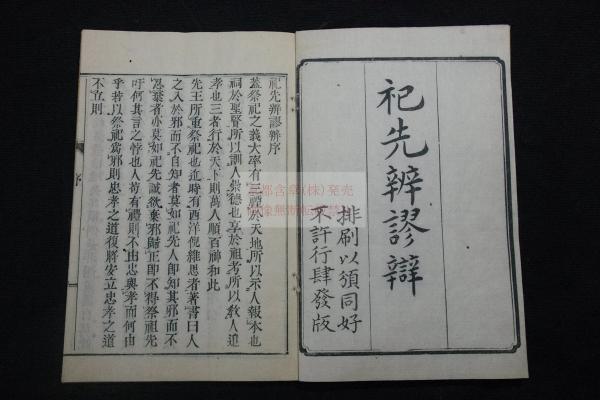 祀先辨謬辯
排刷以頒同好
不許行肆發版
祀先辨謬辨序
蓋祭祀之義大率有三禮於天地所以示人報本也
祠於聖賢所以訓人崇德也享於祖考所以教人追
孝也三者行於天下則萬人順百神和此
先王所重祭祀也近時有西洋倪維思者著書曰人
之入於邪而不自知者莫如祀先人卽知其邪而不
忍棄者亦莫如祀先誠欲棄邪歸正卽不得祭祖先
吁何其言之悖也人苟有禮則不由忠與孝而何由
乎若以祭祀爲邪則忠孝之道復將安立忠孝之道
不立則
序